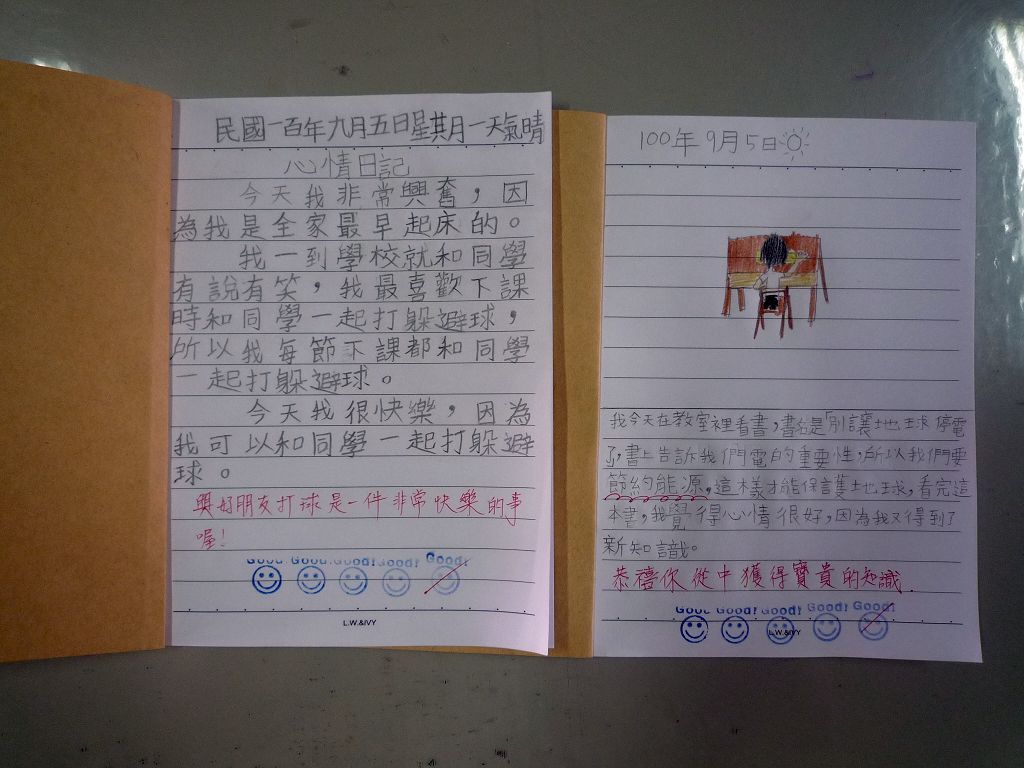 民國一百年九月五日星期一天氣晴
心情日記
今天我非常興奮，因
為我是全家最早起床的。
我一到學校就和同學
有說有笑，我最喜歡下課
時和同學一起打躲避球，
所以我每節下課都和同學
一起打躲避球。
今天我很快樂，因為
我可以和同學一起打躲避
球。
與好朋友打球是一件非常快樂的事
喔！
Good! Good! Good! Good! Good!
L.W.&IVY
100年9月5日
我今天在教室裡看書，書名是「別讓地球停電
了，書上告訴我們電的重要性，所以我們要
節約能源，這樣才能保護地球，看完這
本書，我覺得心情很好，因為我又得到了
新知識。
恭禧你從中獲得寶貴的知識.
Good! Good! Good! Good! Good!
L.W.&IVY